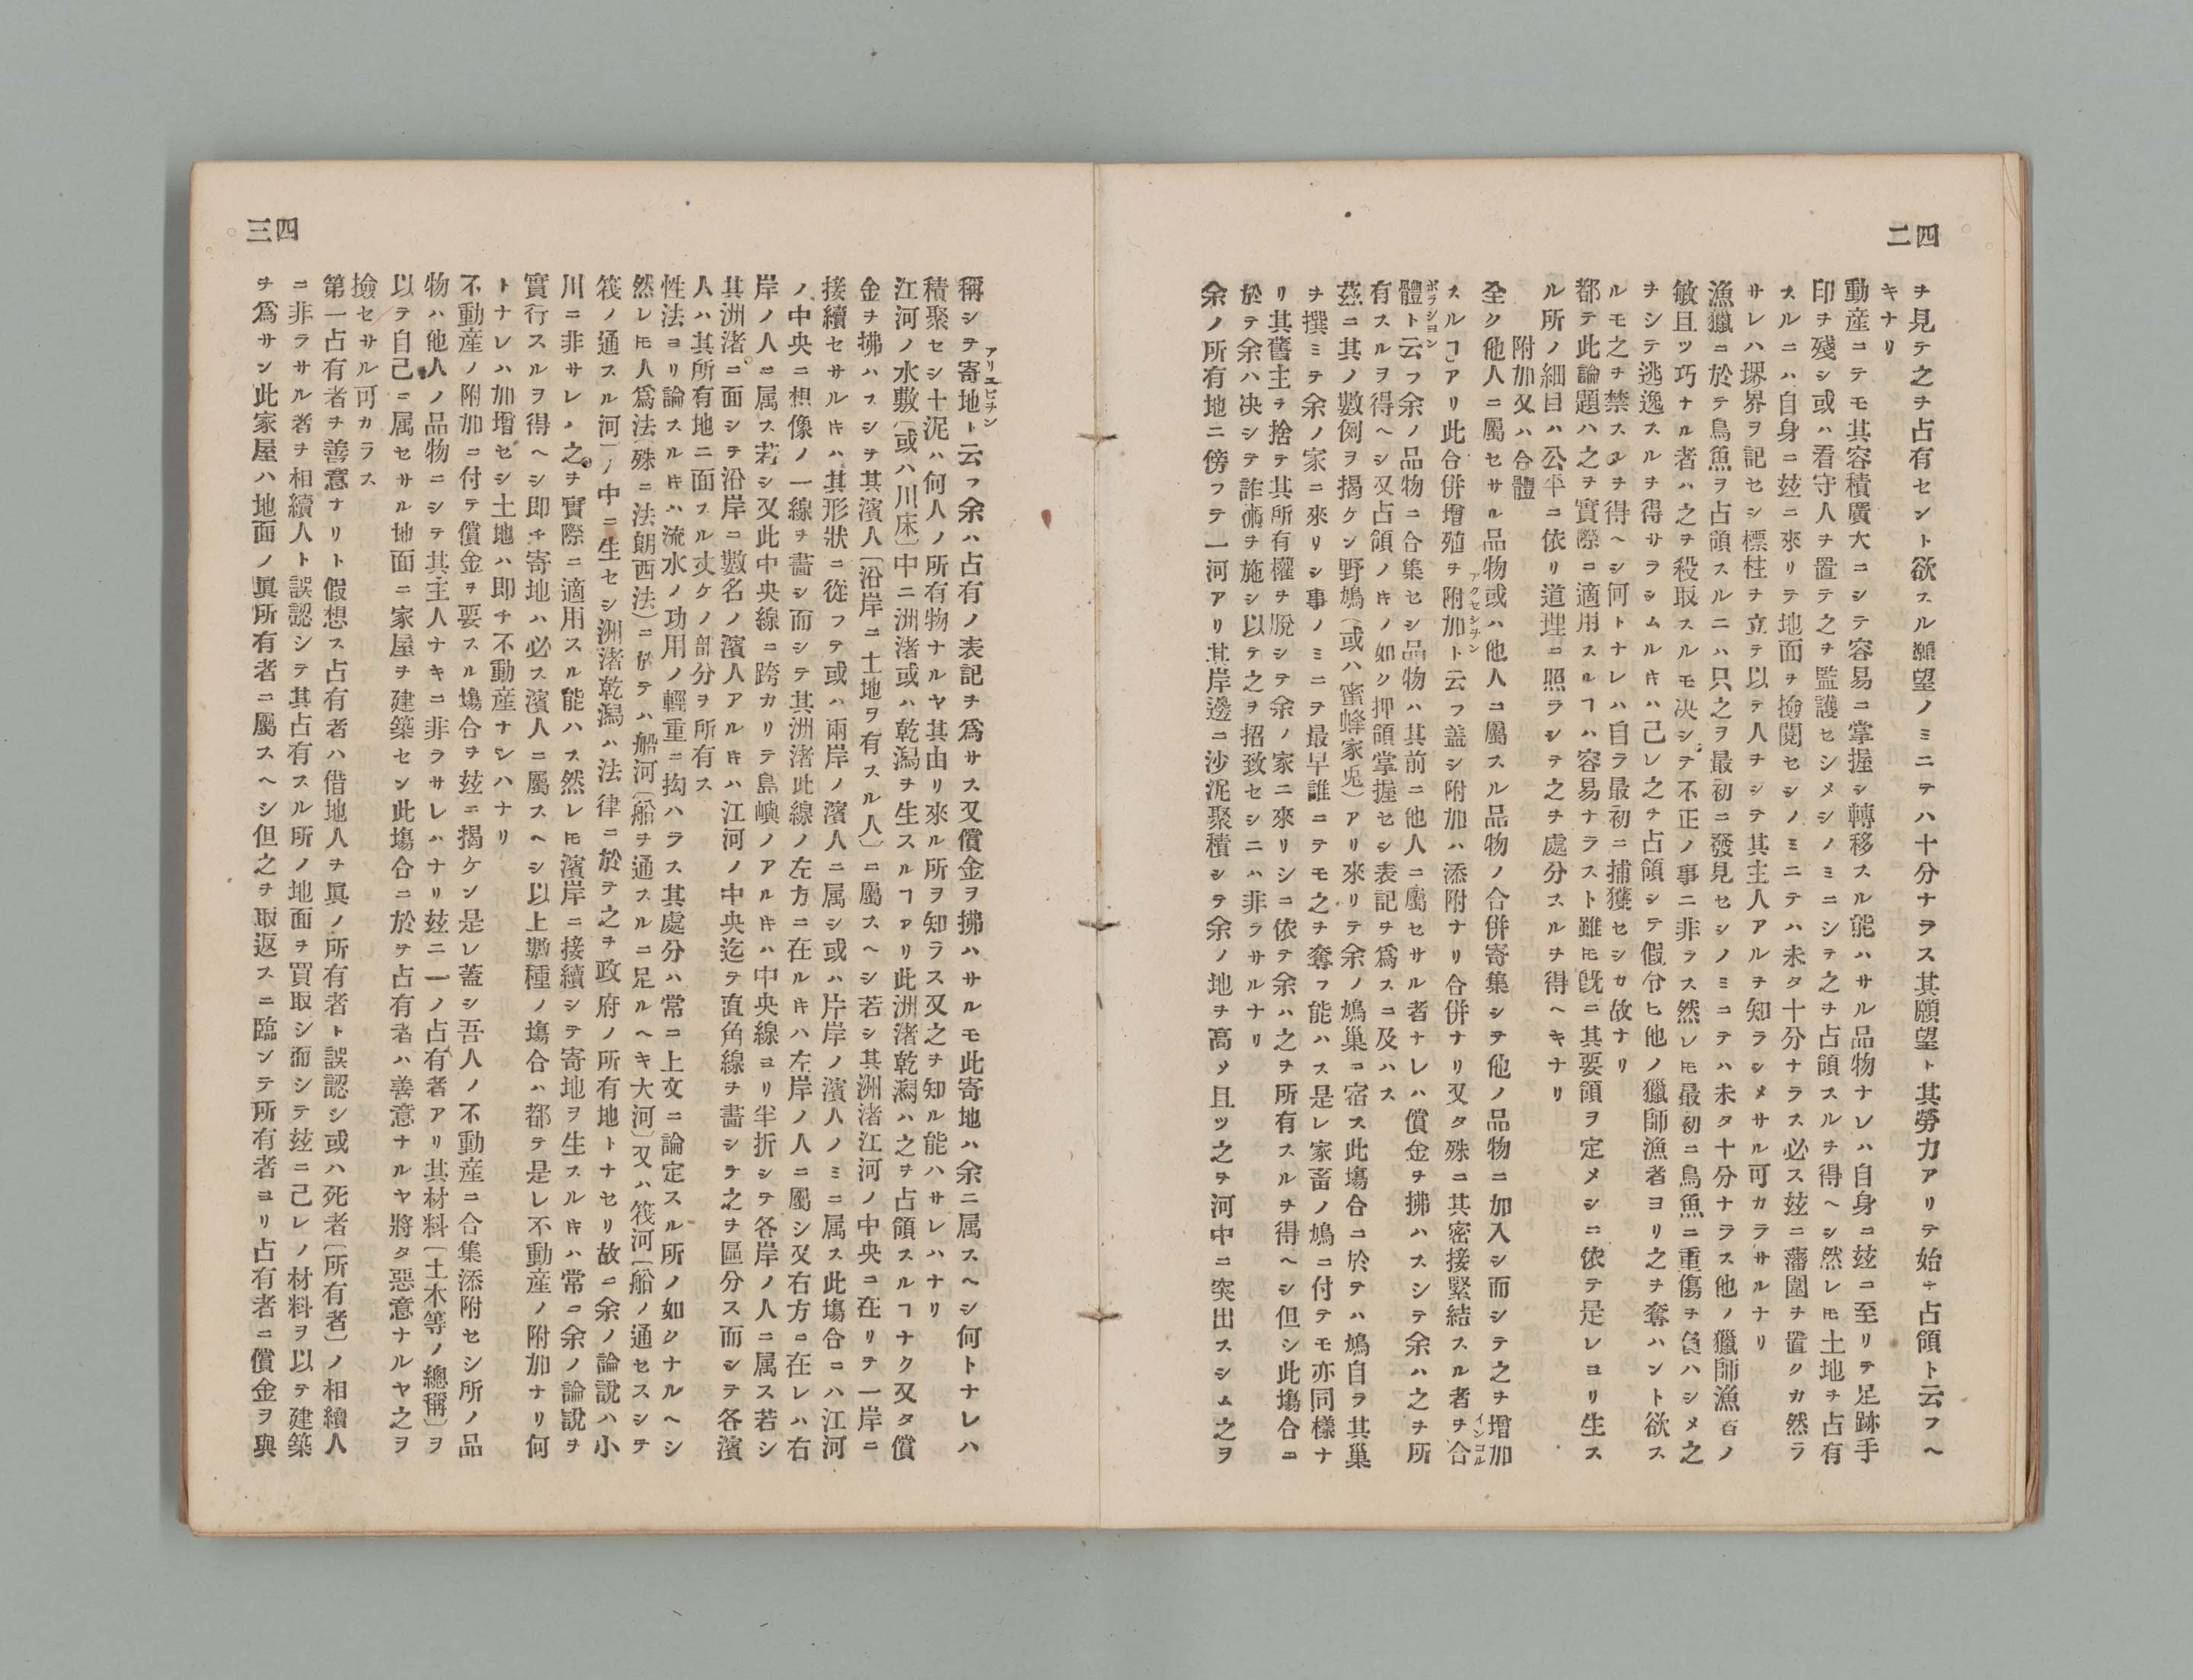 四二
ヲ見テ之ヲ占有セント欲スル願望ノミニテハ十分ナラス其願望ト其勞力アリテ始テ占領ト云フヘ
キナリ
動産ニテモ其容積廣大ニシテ容易ニ掌握シ轉移スル能ハサル品物ナレハ自身ニ玆ニ至リテ足跡手
印ヲ殘シ或ハ看守人ヲ置テ之ヲ監護セシメシノミニシテ之ヲ占領スルヲ得ヘシ然レ𪜈土地ヲ占有
スルニハ自身ニ玆ニ來リテ地面ヲ撿閲セシノミニテハ未タ十分ナラス必ス玆ニ藩圍ヲ置クカ然ラ
サレハ堺界ヲ記セシ標柱ヲ立テ以テ人ヲシテ其主人アルヲ知ラシメサル可カラサルナリ
漁獵ニ於テ鳥魚ヲ占領スルニハ只之ヲ最初ニ發見セシノミニテハ未タ十分ナラス他ノ獵師漁者ノ
敏且ツ巧ナル者ハ之ヲ殺取スルモ决シテ不正ノ事ニ非ラス然レ𪜈最初ニ鳥魚ニ重傷ヲ負ハシメ之
ヲシテ逃逸スルヲ得サラシムルキハ己レ之ヲ占領シテ假令ヒ他ノ獵師漁者ヨリ之ヲ奪ハント欲ス
ルモ之ヲ禁スルヲ得ヘシ何トナレハ自ラ最初ニ捕獲セシカ故ナリ
都テ此論題ハ之ヲ實際ニ適用スルヿハ容易ナラスト雖𪜈旣ニ其要領ヲ定メシニ依テ是レヨリ生ス
ル所ノ細目ハ公平ニ依リ道理ニ照ラシテ之ヲ處分スルヲ得ヘキナリ
附加又ハ合體
全ク他人ニ屬セサル品物或ハ他人ニ屬スル品物ノ合併寄集シテ他ノ品物ニ加入シ而シテ之ヲ增加
スルヿアリ此合併增殖ヲ附加アクセシヲント云フ盖シ附加ハ添附ナリ合併ナリ又タ殊ニ其密接緊結スル者ヲ合インコル
體ポラショント云フ余ノ品物ニ合集セシ品物ハ其前ニ他人ニ屬セサル者ナレハ償金ヲ拂ハスシテ余ハ之ヲ所
有スルヲ得ヘシ又占領ノキノ如ク押領掌握セシ表記ヲ爲スニ及ハス
茲ニ其ノ數例ヲ揭ケン野鳩(或ハ蜜蜂家兎)アリ來リテ余ノ鳩巢ニ宿ス此塲合ニ於テハ鳩自ラ其巢
ヲ撰ミテ余ノ家ニ來リシ事ノミニテ最早誰ニテモ之ヲ奪フ能ハス是レ家畜ノ鳩ニ付テモ亦同樣ナ
リ其舊主ヲ捨テ其所有權ヲ脱シテ余ノ家ニ來リシニ依テ余ハ之ヲ所有スルヲ得ヘシ但シ此塲合ニ
於テ余ハ决シテ詐術ヲ施シ以テ之ヲ招致セシニハ非ラサルナリ
余ノ所有地ニ傍フテ一河アリ其岸邊ニ沙泥聚積シテ余ノ地ヲ高メ且ツ之ヲ河中ニ突出スシム之ヲ
四三
稱シテ寄地アリユヒヲント云フ余ハ占有ノ表記ヲ爲サス又償金ヲ拂ハサルモ此寄地ハ余ニ属スヘシ何トナレハ
積聚セシ土泥ハ何人ノ所有物ナルヤ其由リ來ル所ヲ知ラス又之ヲ知ル能ハサレハナリ
江河ノ水敷(或ハ川床)中ニ洲渚或ハ乾潟ヲ生スルヿアリ此洲渚乾潟ハ之ヲ占領スルヿナク又タ償
金ヲ拂ハスシテ其濱人(沿岸ニ土地ヲ有スル人)ニ屬スヘシ若シ其洲渚江河ノ中央ニ在リテ一岸ニ
接續セサルキハ其形狀ニ從フテ或ハ兩岸ノ濱人ニ属シ或ハ片岸ノ濱人ノミニ属ス此塲合ニハ江河
ノ中央ニ想像ノ一線ヲ畵シ而シテ其洲渚此線ノ左方ニ在ルキハ左岸ノ人ニ屬シ又右方ニ在レハ右
岸ノ人ニ属ス若シ又此中央線ニ跨カリテ島嶼ノアルキハ中央線ヨリ半折シテ各岸ノ人ニ属ス若シ
其洲渚ニ面シテ沿岸ニ數名ノ濱人アルキハ江河ノ中央迄テ直角線ヲ畵シテ之ヲ區分ス而シテ各濱
人ハ其所有地ニ面スル丈ケノ部分ヲ所有ス
性法ヨリ論スルキハ流水ノ功用ノ輕重ニ拘ハラス其處分ハ常ニ上文ニ論定スル所ノ如クナルヘシ
然レ𪜈人爲法(殊ニ法朗西法)ニ於テハ船河(船ヲ通スルニ足ルヘキ大河)又ハ筏河(船ノ通セスシテ
筏ノ通スル河)ノ中ニ生セシ洲渚乾潟ハ法律ニ於テ之ヲ政府ノ所有地トナセリ故ニ余ノ論說ハ小
川ニ非サレハ之ヲ實際ニ適用スル能ハス然レ𪜈濱岸ニ接續シテ寄地ヲ生スルキハ常ニ余ノ論說ヲ
實行スルヲ得ヘシ即チ寄地ハ必ス濱人ニ屬スヘシ以上數種ノ塲合ハ都テ是レ不動産ノ附加ナリ何
トナレハ加增セシ土地ハ即チ不動産ナレハナリ
不動産ノ附加ニ付テ償金ヲ要スル塲合ヲ玆ニ揭ケン是レ蓋シ吾人ノ不動産ニ合集添附セシ所ノ品
物ハ他人ノ品物ニシテ其主人ナキニ非ラサレハナリ玆ニ一ノ占有者アリ其材料(土木等ノ總稱)ヲ
以テ自己ニ属セサル地面ニ家屋ヲ建築セン此塲合ニ於テ占有者ハ善意ナルヤ將タ惡意ナルヤ之ヲ
撿セサル可カラス
第一占有者ヲ善意ナリト假想ス占有者ハ借地人ヲ眞ノ所有者ト誤認シ或ハ死者(所有者)ノ相續人
ニ非ラサル者ヲ相續人ト誤認シテ其占有スル所ノ地面ヲ買取シ而シテ玆ニ己レノ材料ヲ以テ建築
ヲ爲サン此家屋ハ地面ノ眞所有者ニ屬スヘシ但之ヲ取返スニ臨ンテ所有者ヨリ占有者ニ償金ヲ與